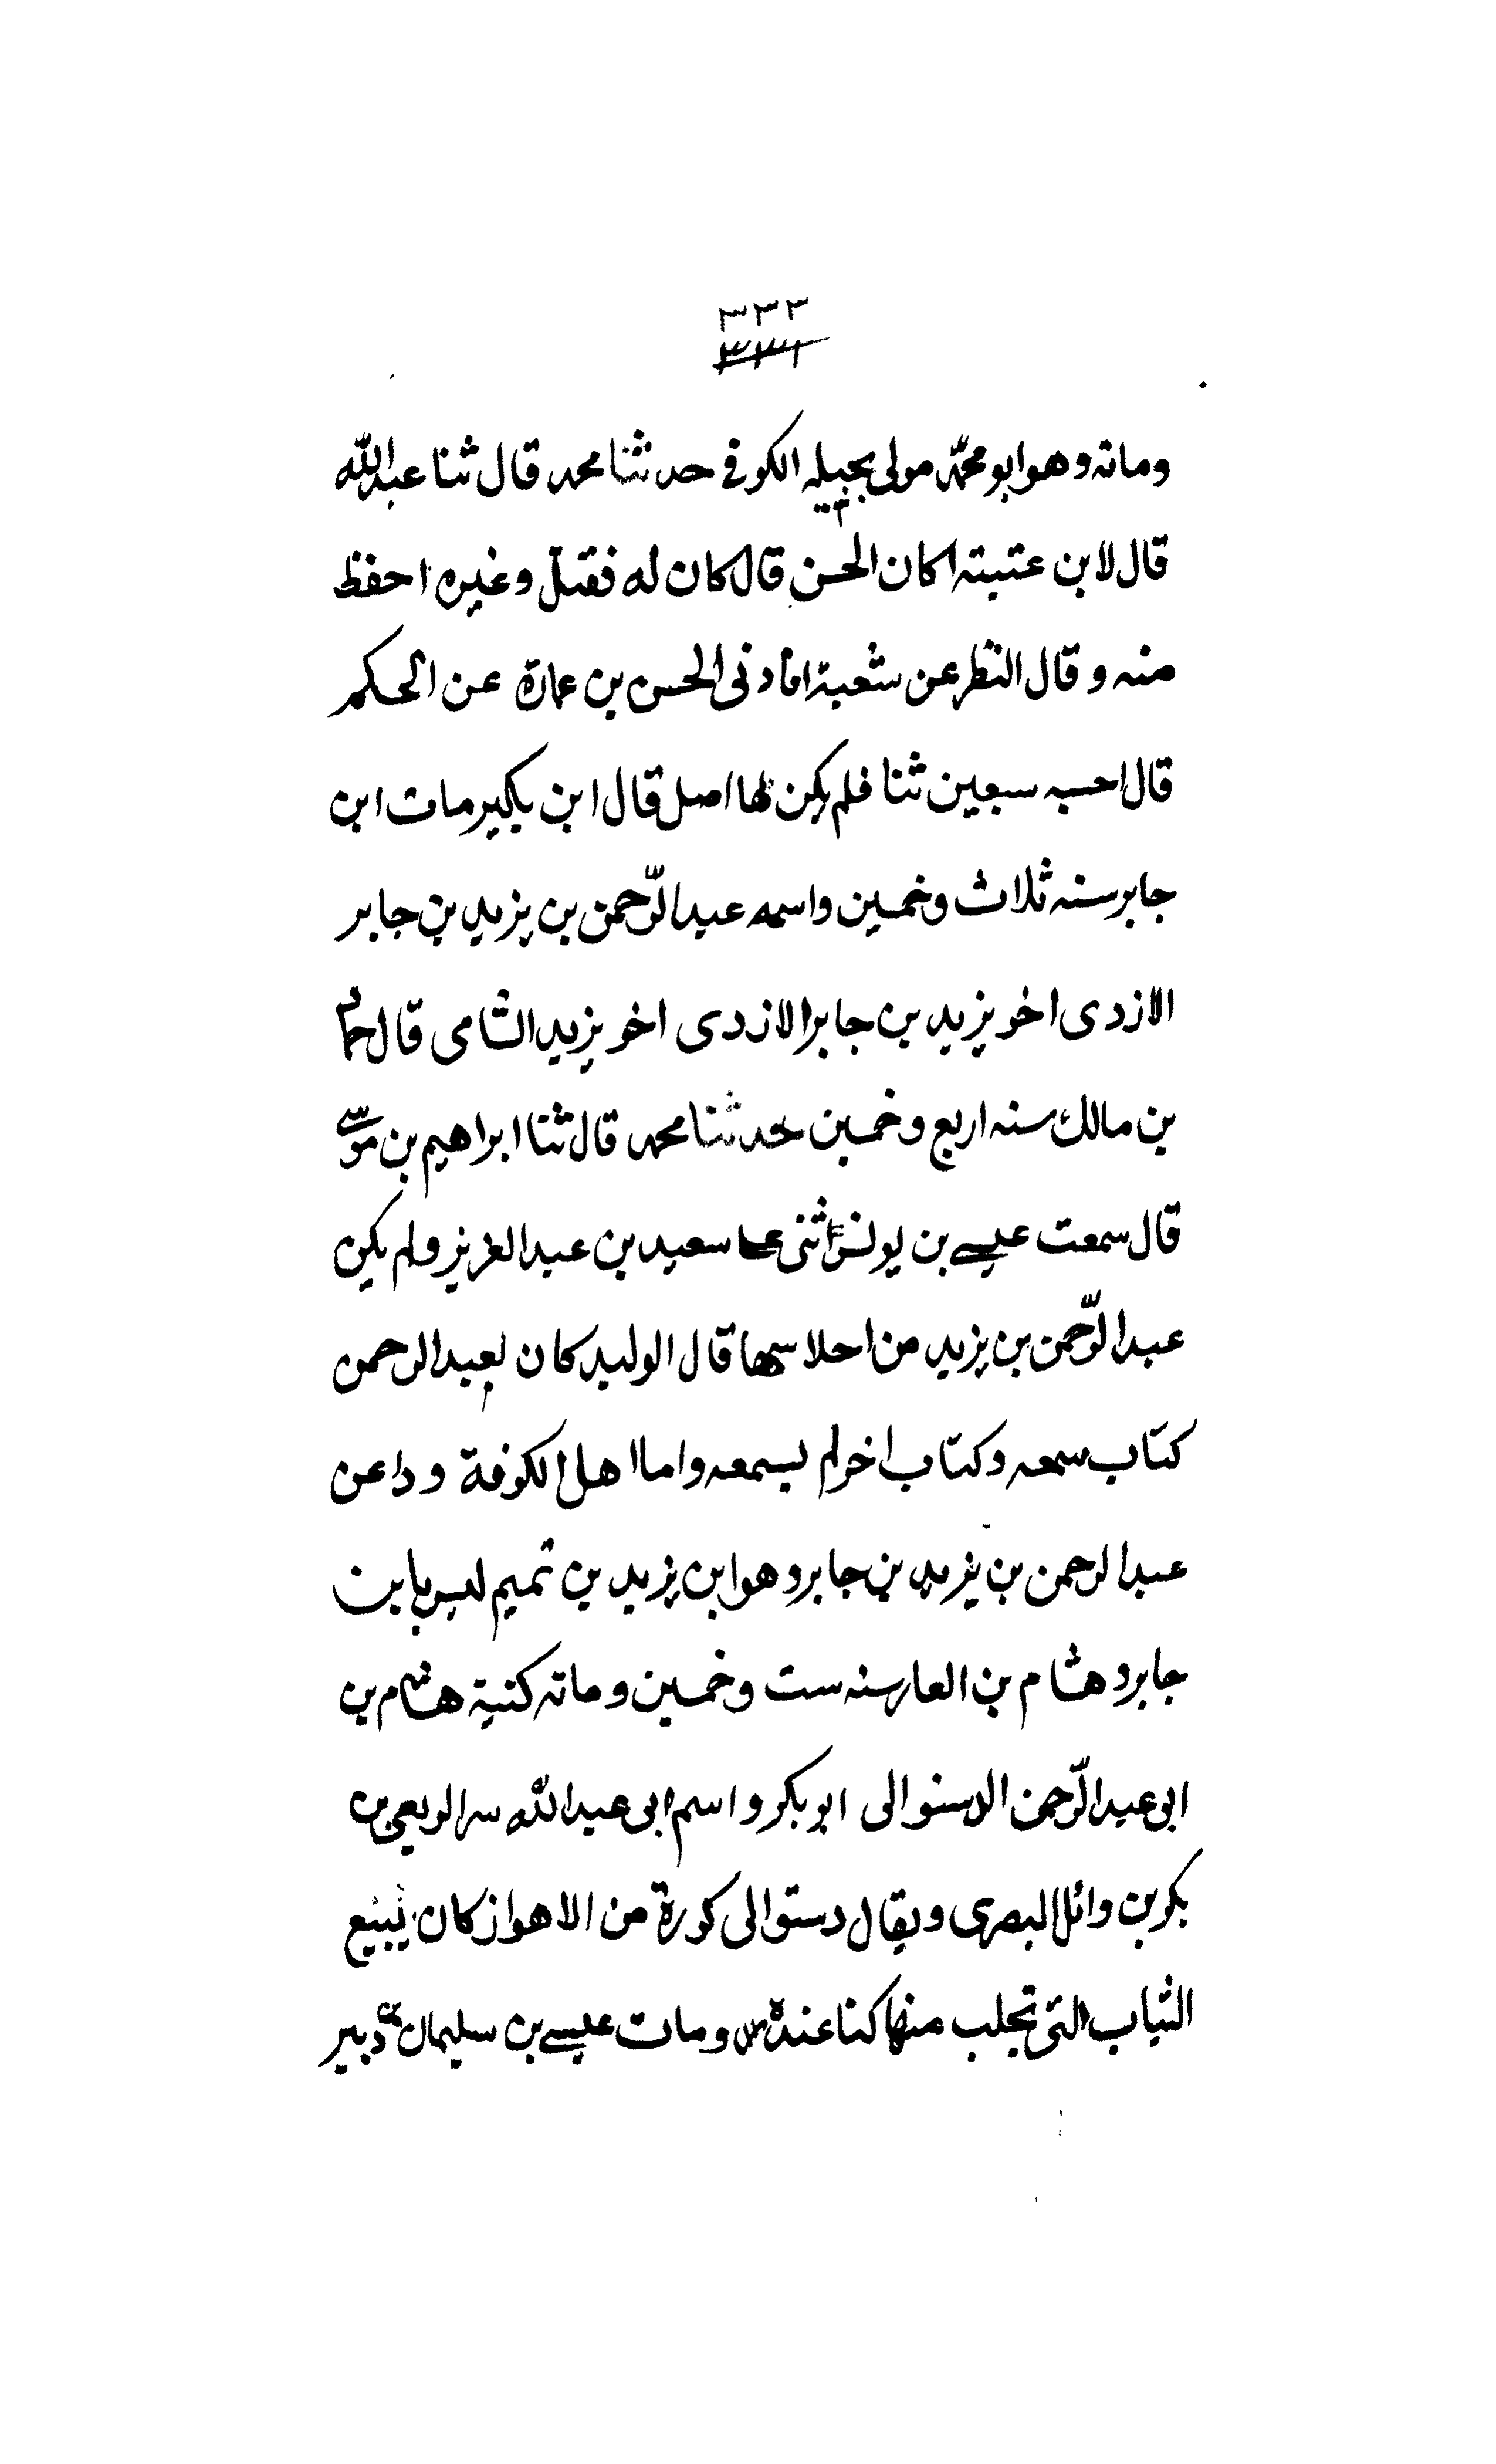 ٣٣٢
٣٣١
ومائه وهو ابو محمّد مولى بجيله الكوفى حدثنا محمد قال ثنا عبدالله
قال لابن عتيبته اكان الحسن قال كان له فقبل وغيره احفظ
منه وقال النظر عن شعبة افادنى الحسن بن عمارة عن الحكم
قال احسبه سبعين ثنا فلم يكن لها اصل قال ابن بكير مات ابن
جابر سنه ثلاث وخمسين واسمه عبد الرّحمن بن يزيد بن جابر
الازدى اخو يزيد بن جابر الازدى اخو يزيد الشامى قال حماد
بن مالك سنه اربع وخمسين حدثنا محمد قال ثنا ابراهيم بن موسى
قال سمعت عيسى بن يونس اثنى على سعيد بن عبد العزيز ولم يكن
عبد الرّحمن بن يزيد من احلاسها قال الوليد كان لعبد الرحمن
كتاب سمعه وكتاب اخر لم يسمعه واما اهل الكوفة وداعن
عبد الرحمن بن يزيد بن جابر وهو ابن يزيد بن تميم ليس بابن
جابر وهشام بن العار سنه ست وخمسين ومائه كنية هشام بن
ابى عبد الرّحمن الاستوالى ابو بكر واسم ابى عبدالله بن
بكر بن وائل البصرى ويقال دستوالى كورة من الاهواز كان يبيع
الثياب التى تجلب منها كنا عنده ومات عيسى بن سليمان دبير